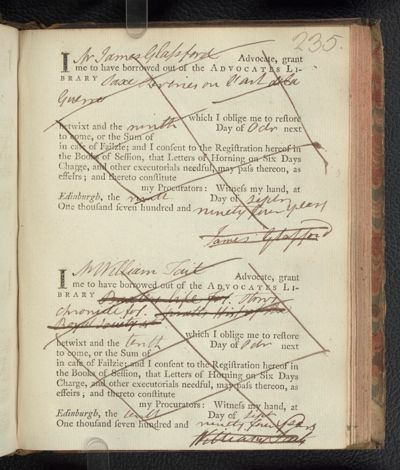 235.
I Mr James Glassford Advocate, grant
me to have borrowed out of the ADVOCATES LI-
BRARY Saxe Reveries on L'art de la
Guerre
which I oblige me to reſtore
betwixt the ninth Day of Octr next
to come, or the Sum of
in caſe of Failzie; and I conſent to the Regiſtration hereof in
the Books of Seſſion, that Letters of Horning on Six Days
Charge, and other executorials needful, may paſs thereon, as
effeirs; and thereto conſtitute
my Procurators: Witneſs my hand, at
Edinburgh, the ninth Day of Septr
One thouſand ſeven hundred and ninety four years
James Glassford
I Mr William Tait Advocate, grant
me to have borrowed out of the ADVOCATES LI-
BRARY life for. Stow's
chronicle for.
Royal Society
which I oblige me to reſtore
betwixt the tenth Day of Octr next
to come, or the Sum of
in caſe of Failzie; and I conſent to the Regiſtration hereof in
the Books of Seſſion, that Letters of Horning on Six Days
Charge, and other executorials needful, may paſs thereon, as
effeirs; and thereto conſtitute
my Procurators: Witneſs my hand, at
Edinburgh, the tenth Day of Sept
One thouſand ſeven hundred and ninety four years
William Tait